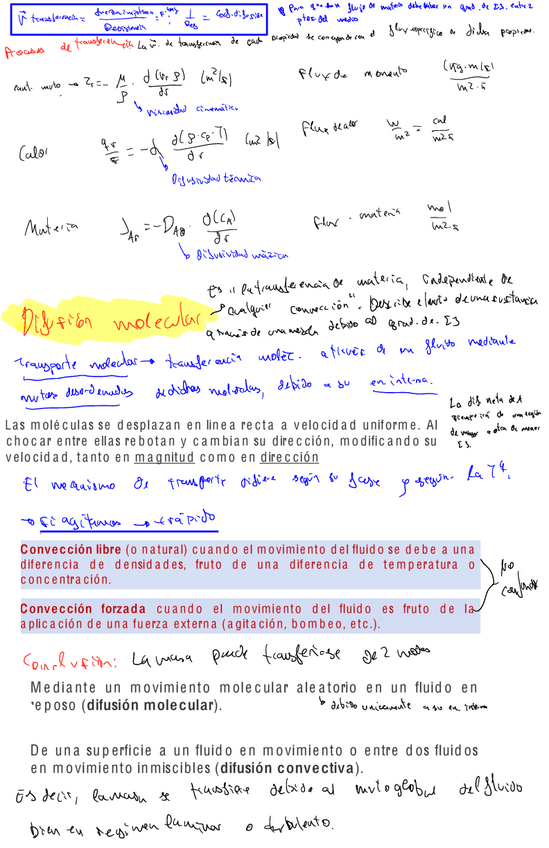 V transferencia =
Para que haya flujo de materia debe haber un grad. de [] entre 2
ptos del medio
Procesos de transferencia La V de transferencia de cada propiedad se corresponde con el flux específico de dicha propiedad.
cant. mvto → τ = - μ/ρ · d(v ρ)/dr (m²/s)
Flux de momento (kg·m/s)/m²·s
viscosidad cinemática
Calor = -α d(ρ·cp·T)/dr (m2/s)
Flux de calor w/m² = cal/m²s
Difusividad térmica
Materia JAr = -DAB · d(CA)/dr
Flux · materia mol/m²s
Difusividad másica
Es "la transferencia de materia, independiente de
Difusión molecular
cualquier convección". Describe el mvto de una sustancia
a través de una mezcla debido al grad. de. []
Transporte molecular → transferencia moléc. a través de un fluido mediante
mvtos desordenados de dichas moléculas, debido a su en interna.
La dif neta del
de mayor a otra de menor
[].
Las moléculas se desplazan en linea recta a velocidad uniforme. Al
chocar entre ellas rebotan y cambian su dirección, modificando su
velocidad, tanto en magnitud como en dirección
El mecanismo de transporte difiere según su fase y según la Tª.
→ si agitamos → + rápido
Convección libre (o natural) cuando el movimiento del fluido se debe a una
diferencia de densidades, fruto de una diferencia de temperatura o
concentración.
no
confundir
Convección forzada cuando el movimiento del fluido es fruto de la
aplicación de una fuerza externa (agitación, bombeo, etc.).
Conclusión: La masa puede transferirse de 2 modos
Mediante un movimiento molecular aleatorio en un fluido en
reposo (difusión molecular).
debido unicamente a su en interna
De una superficie a un fluido en movimiento o entre dos fluidos
en movimiento inmiscibles (difusión convectiva).
Es decir, la masa se transfiere debido al mvto global del fluido
bien en regimen laminar o turbulento.